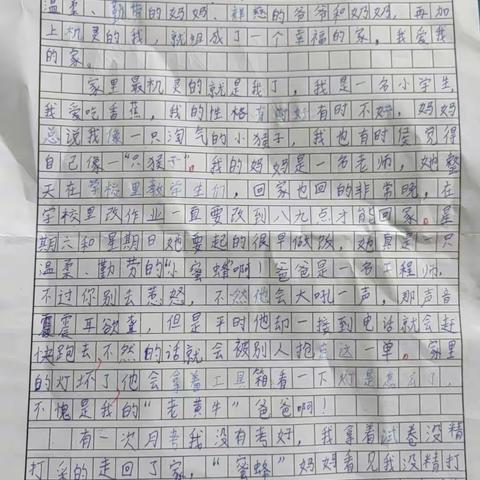 温柔、勤劳的妈妈、慈祥的爷爷和奶奶，再加
上机灵的我，就组成了一个幸福的家。我爱我
的家。
家里最机灵的就是我了，我是一名小学生，
我爱吃香蕉，我的性格有时好有时不好，妈妈
总说我像一只淘气的小猴子，我也有时候觉得
自己像一“只猴子”。我的妈妈是一名老师，她整
天在学校里教学生们，回家也回的非常晚，在
学校里改作业一直要改到八九点才能回家。星
期六和星期日她要起的很早做饭，她真是一只
温柔、勤劳的“小蜜蜂啊！爸爸是一名工程师，
不过你别去惹怒，不然他会大吼一声，那声音
震耳欲聋，但是平时他却一接到电话就会赶
快跑去，不然的话就会被别人抢去这一单。家里
的灯坏了他会拿着工具箱看一下灯是怎么了，
不愧是我的“老黄牛”爸爸啊！
有一次月考我没有考好，我拿着试卷没精
打采的走回了家，“蜜蜂”妈妈看见我没精打